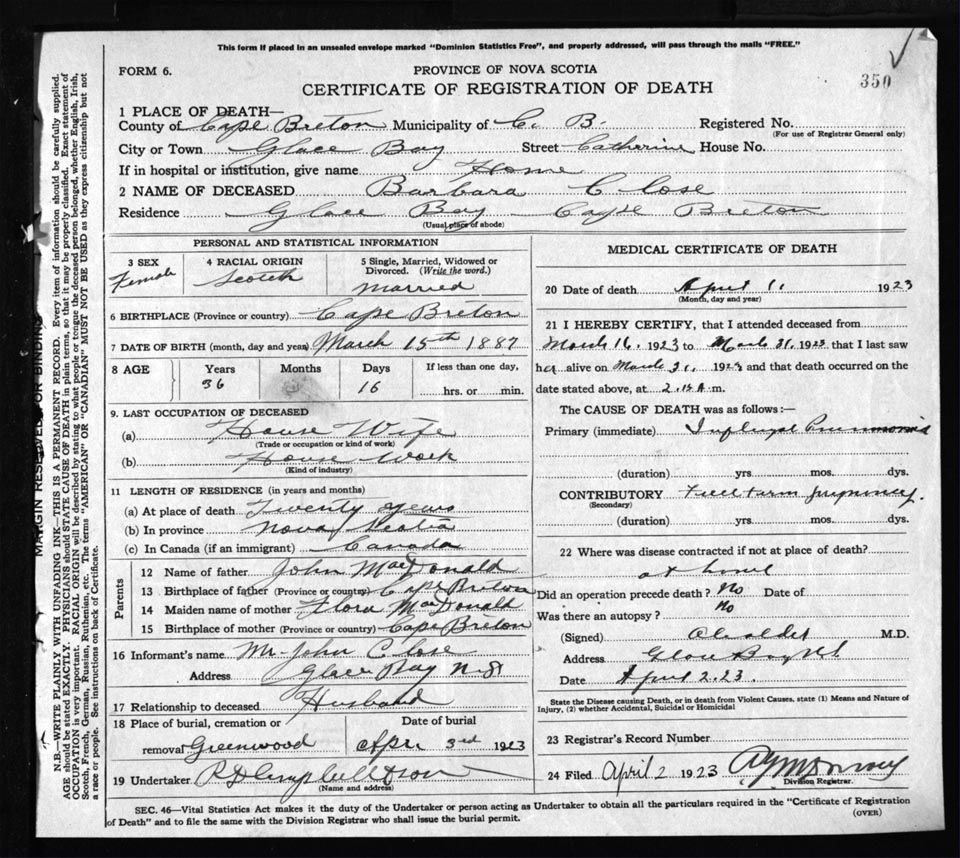 This form if placed in an unsealed envelope marked "Dominion Statistics Free", and properly addressed, will pass through the mails "FREE."
350
FORM 6.
PROVINCE OF NOVA SCOTIA
CERTIFICATE OF REGISTRATION OF DEATH
1 PLACE OF DEATH—
County of Cape Breton Municipality of C. B. Registered No.
(For use of Registrar General only)
City or Town Glace Bay Street Catherine House No.
If in hospital or institution, give name Home
2 NAME OF DECEASED Barbara Close
Residence Glace Bay Cape Breton
(Usual place of abode)
PERSONAL AND STATISTICAL INFORMATION
3 SEX Female
4 RACIAL ORIGIN Scotch
5 Single, Married, Widowed or Divorced. (Write the word.)
Married
6 BIRTHPLACE (Province or country) Cape Breton
7 DATE OF BIRTH (month, day and year) March 15th 1887
8 AGE Years Months Days If less than one day,
36 16 hrs. or min.
9. LAST OCCUPATION OF DECEASED
(a) House Wife
(Trade or occupation or kind of work)
(b) House Work
(Kind of industry)
11 LENGTH OF RESIDENCE (in years and months)
(a) At place of death Twenty years
(b) In province Nova Scotia
(c) In Canada (if an immigrant) Canada
Parents
12 Name of father John MacDonald
13 Birthplace of father (Province or country) Cape Breton
14 Maiden name of mother Flora MacDonald
15 Birthplace of mother (Province or country) Cape Breton
16 Informant's name Mr John Close
Address Glace Bay N.S
17 Relationship to deceased Husband
18 Place of burial, cremation or removal Greenwood
Date of burial
Apr 3rd 1923
19 Undertaker
(Name and address)
MEDICAL CERTIFICATE OF DEATH
20 Date of death April 1, 1923
(Month, day and year)
21 I HEREBY CERTIFY, that I attended deceased from
March 16. 1923 to March 31, 1923 that I last saw
her alive on March 31, 1923 and that death occurred on the
date stated above, at 2. A. m.
The CAUSE OF DEATH was as follows:—
Primary (immediate) Pneumonia
(duration) yrs. mos. dys.
CONTRIBUTORY Full term pregnancy.
(Secondary)
(duration) yrs. mos. dys.
22 Where was disease contracted if not at place of death?
at home
Did an operation precede death? No Date of
Was there an autopsy? No
(Signed) M.D.
Address Glace Bay
Date April 2. 23.
State the Disease causing Death, or in death from Violent Causes, state (1) Means and Nature of
Injury, (2) whether Accidental, Suicidal or Homicidal
23 Registrar's Record Number
24 Filed April 2 1923
Division Registrar.
SEC. 46—Vital Statistics Act makes it the duty of the Undertaker or person acting as Undertaker to obtain all the particulars required in the "Certificate of Registration
of Death" and to file the same with the Division Registrar who shall issue the burial permit.
(OVER)
MARGIN RESERVED FOR BINDING
N.B.—WRITE PLAINLY WITH UNFADING INK—THIS IS A PERMANENT RECORD. Every item of information should be carefully supplied.
AGE should be stated EXACTLY. PHYSICIANS should STATE CAUSE OF DEATH in plain terms, so that it may be properly classified. Exact statement of
OCCUPATION is very important. RACIAL ORIGIN will be described by stating to what people or tongue the deceased person belonged, whether English, Irish,
Scotch, French, German, Russian, Ruthenian, etc. The terms "AMERICAN" OR "CANADIAN" MUST NOT BE USED as they express citizenship but not
a race or people. See instructions on back of Certificate.